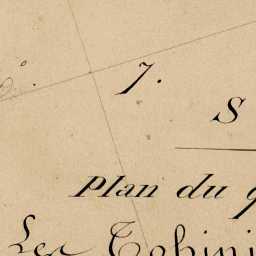 7.
S
Plan du q
Les Tobini